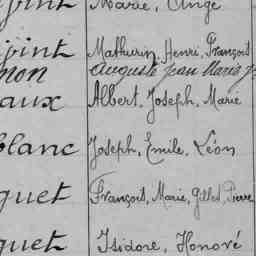 Marie, Ange
Mathurin, Henri, François
Auguste Jean Marie
aux Albert, Joseph, Marie
blanc Joseph, Emile, Léon
quet François, Marie, Gilles, Pierre
quet Isidore, Honoré